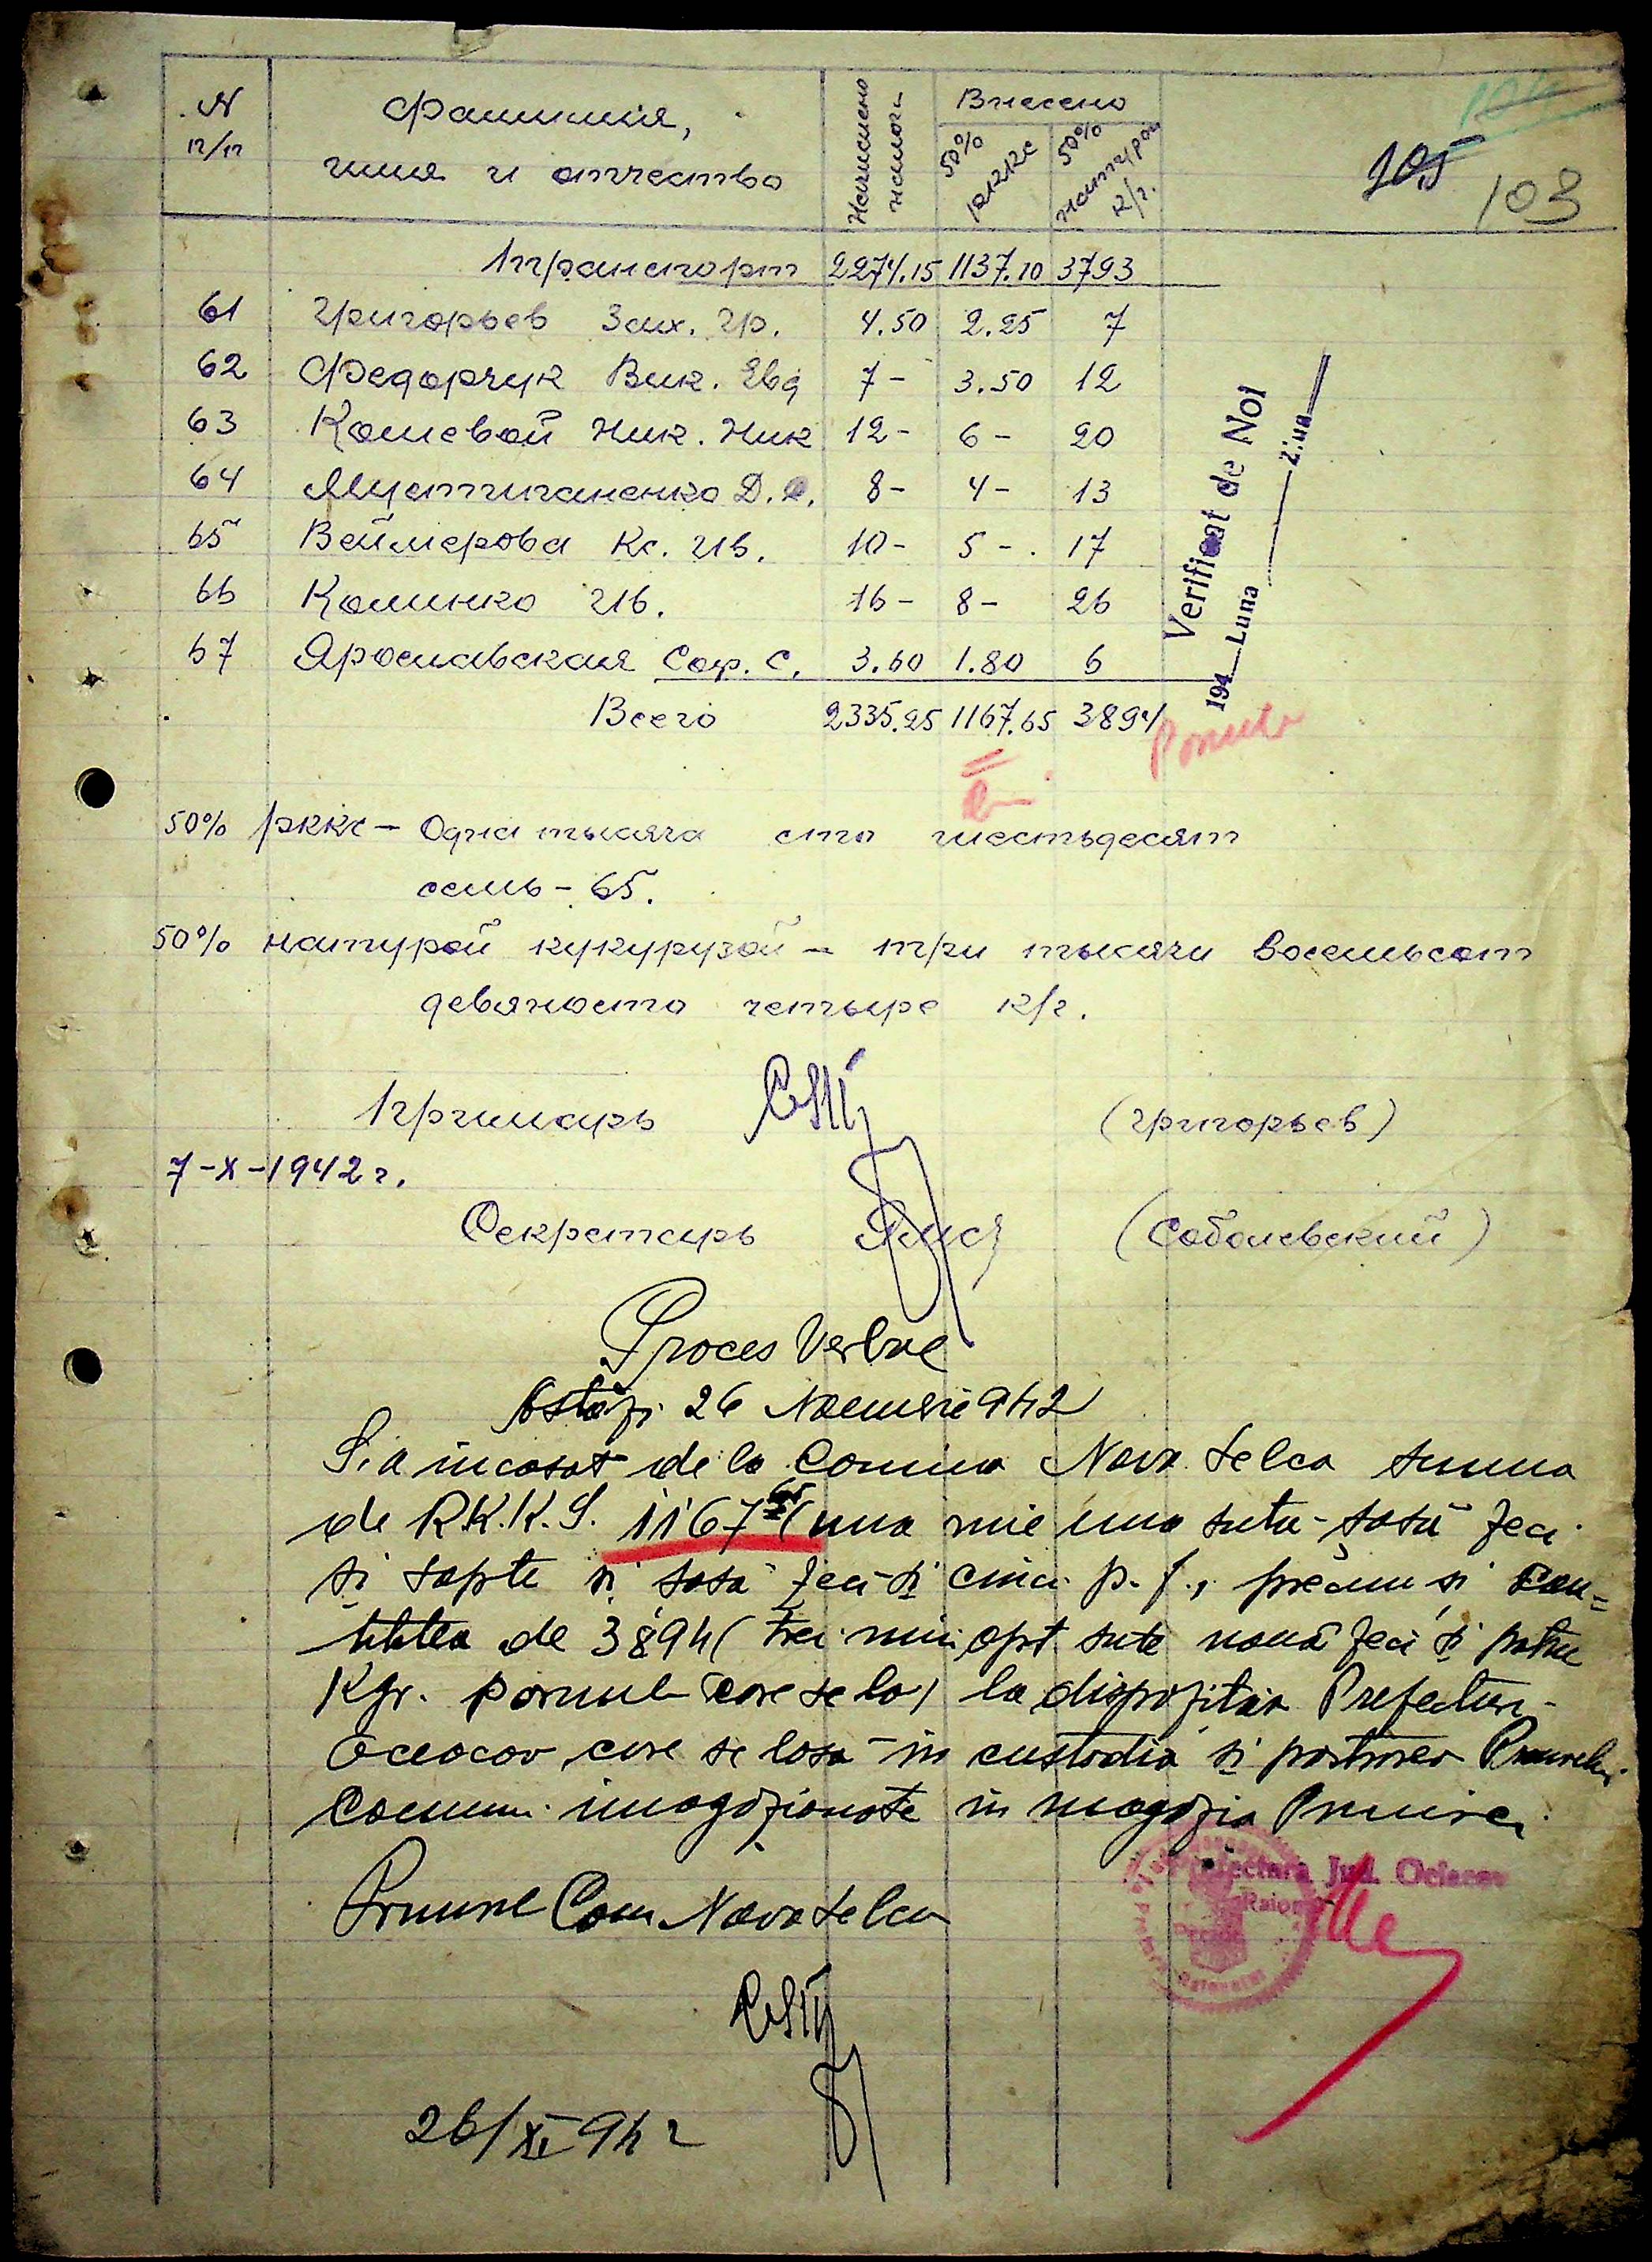 N п/п
Фамилия, имя и отчество
Начислено налога
Внесено
50% РККС
50% натурой к/г.
105
103
Транспорт 2274.15 1137.10 3793
61 Григорьев Зах. Гр. 4.50 2.25 7
62 Федорчук Вик. Евд 7- 3.50 12
63 Кошевой Ник. Ник 12- 6- 20
64 Д. 8- 4- 13
65 Веймерова Кс. Ив. 10- 5- 17
66 Калинко Ив. 16- 8- 26
67 Ярославская Соф. С. 3.60 1.80 6
Всего 2335.25 1167.65 3894
Verificat de Noi
194 Luna Ziua
50% РККС - Одна тысяча сто шестьдесят
семь - 65.
50% натурой кукурузой - три тысячи восемьсот
девяносто четыре к/г.
Примарь (Григорьев)
7-X-1942 г.
Секретарь (Соболевский)
Proces Verbal
Astăzi 26 Noemvrie 942
S'a incasat de la Comuna Novo Selca suma
de R.K.K.S. 1167 65 (una mie una suta șasă zeci
și sapte si sasă zeci si cinci p. f., precum și can=
titatea de 3894 (trei mii opt sute nouă zeci și patru
Kgr. porumb care se la) la dispoziția Prefecturi
Oceacov care se lasă in custodia si pastrarea Primarului
Comunei inmagazionate in magazia Primirei
Primarul Com Novoselca
Prefectura Jud. Oceacov
26/XI 942